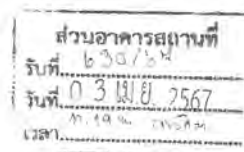 ส่วนอาคารสถานที่
รับที่ 630/67
วันที่ 0 3 เม.ย. 2567
เวลา